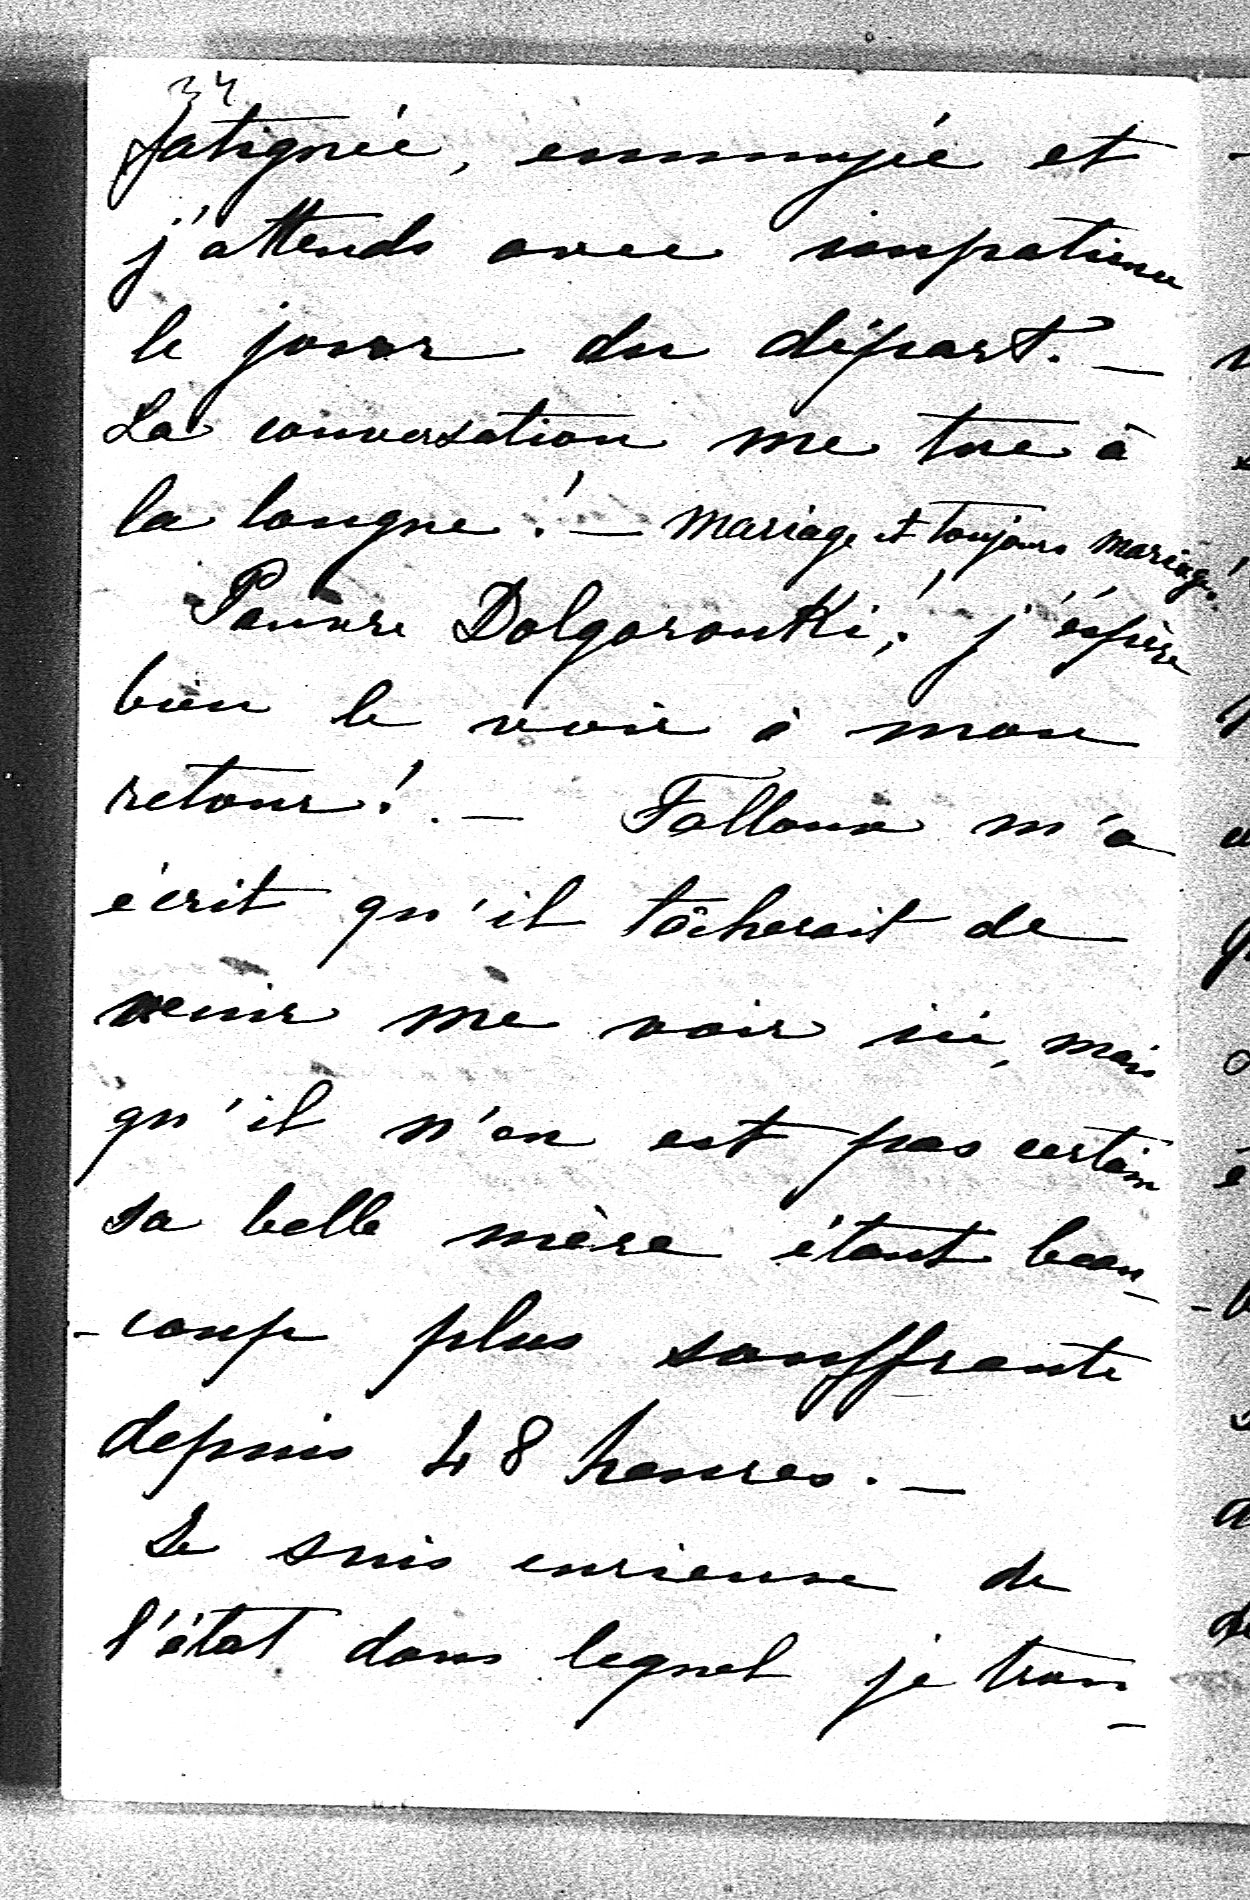 34
fatignée, ennuyée et
j'attends avec impatience
le jour du départ. —
La conversation me tue à
la longue! — Mariage et toujours mariage!
Pauvre Dolgorouki! j'éspère
bien le voir à mon
retour!. — Falloux m'a
écrit qu'il tâcherait de
venir me voir ici, mais
qu'il n'en est pas certain
sa belle mère étant beau-
-coup plus souffrante
depuis 48 heures. —
Je suis curieuse de
l'état dans lequel je trou-